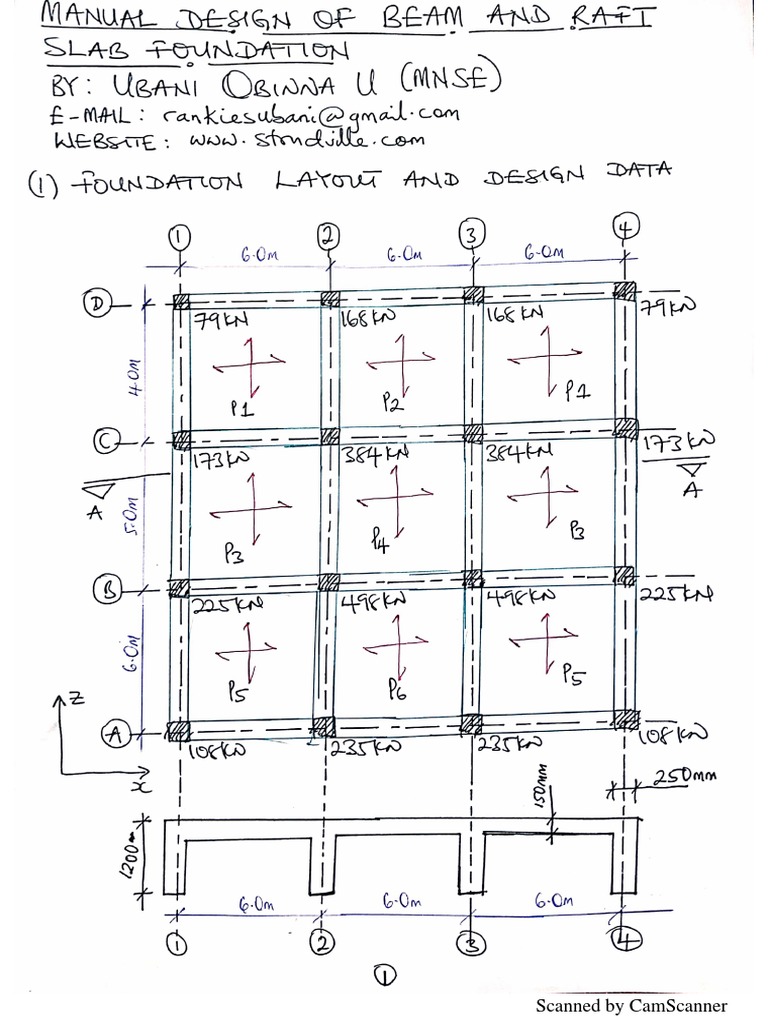 MANUAL DESIGN OF BEAM AND RAFT
SLAB FOUNDATION
BY: UBANI OBINNA U (MNSE)
E-MAIL: rankiesubani@gmail.com
WEBSITE: www.structville.com
(1) FOUNDATION LAYOUT AND DESIGN DATA
1 2 3 4
6.0m 6.0m 6.0m
D
79KN 168KN 168KN 79KN
4.0m
P1 P2 P1
C
173KN 384KN 384KN 173KN
A A
5.0m
P3 P4 P3
B
225KN 498KN 498KN 225KN
6.0m
P5 P6 P5
Z
A
108KN 235KN 235KN 108KN
x
250mm
150mm
1200m
6.0m 6.0m 6.0m
1 2 3 4
1
Scanned by CamScanner